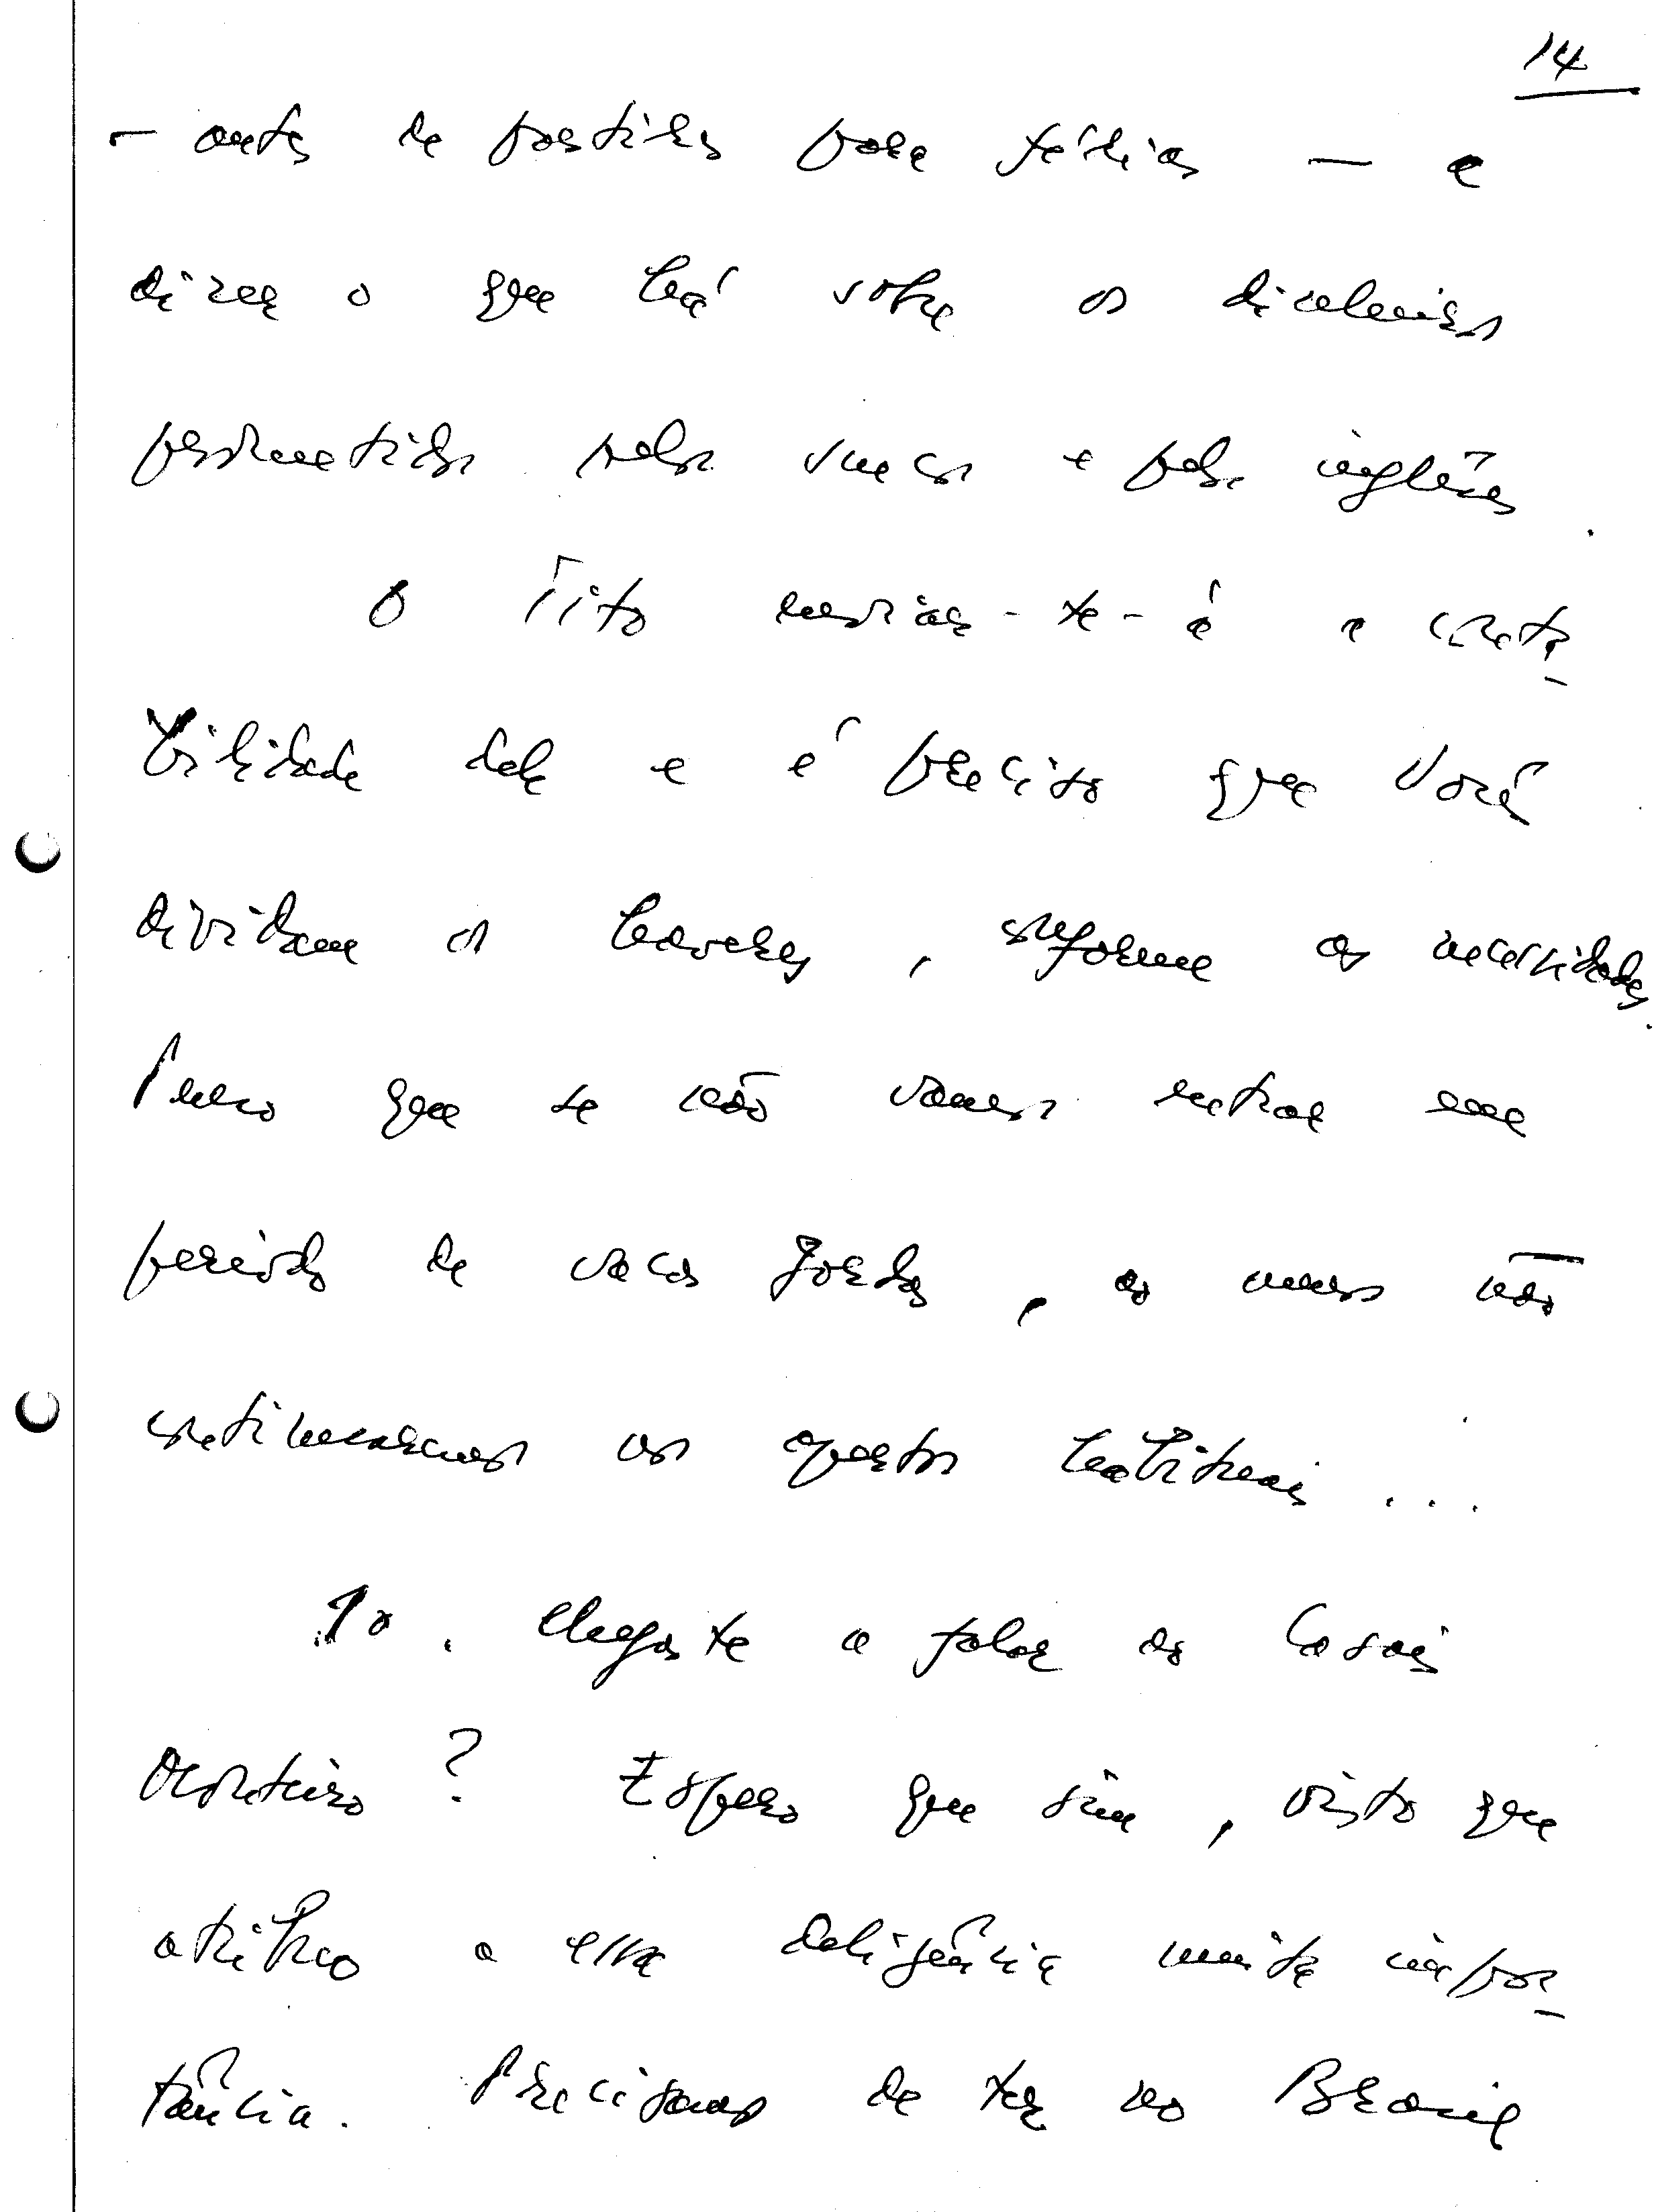 14
— antes de partires para férias — a
dizer o que há sobre os dinheiros
prometidos pelos suecos e pelos ingleses.
O Tito enviar-te-á a conta-
bilidade dele e é preciso que vocês
dividam os haveres, conforme as necessidades.
Penso que se não vamos entrar num
período de vacas gordas, ao menos não
continuaremos nos apertos habituais...
10. Chegaste a falar ao Casais
Monteiro? Espero que sim, visto que
atribuo a essa deligência muita impor-
tância. Precisamos de ter no Brasil